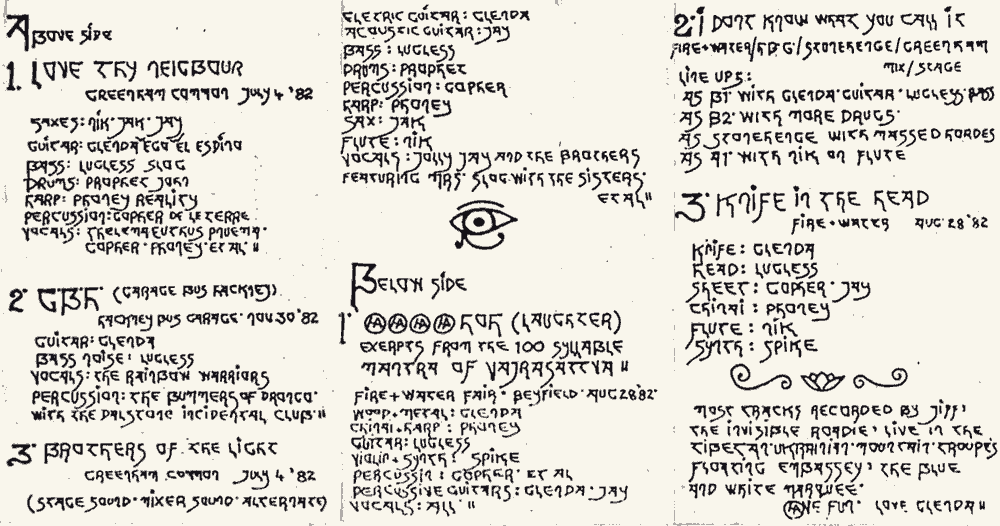 ABOVE SIDE
1. LOVE THY NEIGBOUR
GREENHAM COMMON JULY 4 '82
SAXES: NIK. JAK. JAY
GUITAR: GLENDA EGO EL ESPINO
BASS: LUGLESS SLOG
DRUMS: PROPHET JOHN
HARP: PHONEY REALITY
PERCUSSION: GOPHER DE LE TERRE
VOCALS: THELEMA EUTKUS PNUEMA.
GOPHER. PHONEY. ET AL "
2. G.B.H. (GARAGE BUS HACKNEY)
HACKNEY BUS GARAGE. NOV. 30 '82
GUITAR: GLENDA
BASS NOISE: LUGLESS
VOCALS: THE RAINBOW WARRIORS
PERCUSSION: THE BUMMERS OF DRONGO.
WITH THE DALSTONE INCIDENTAL CLUB "
3. BROTHERS OF THE LIGHT
GREENHAM COMMON JULY 4 '82
(STAGE SOUND. MIXER SOUND. ALTERNATE)
ELECTRIC GUITAR: GLENDA
ACOUSTIC GUITAR: JAY
BASS: LUGLESS
DRUMS: PROPHET
PERCUSSION: GOPHER
HARP: PHONEY
SAX: JAK
FLUTE: NIK
VOCALS: JOLLY JAY AND THE BROTHERS
FEATURING MRS. SLOG WITH THE SISTERS.
ET AL "
BELOW SIDE
1. HA HA HA HA HOH (LAUGHTER)
EXERPTS FROM THE 100 SYLLABLE
MANTRA OF VAJRASATTVA "
FIRE + WATER FAIR. BEYFIELD. AUG 28 82.
WOOD + METAL: GLENDA
CHINAI + HARP: PHONEY
GUITAR: LUGLESS
VIOLIN + SYNTH: SPIKE
PERCUSSIN: GOPHER. ET AL
PERCUSSIVE GUITARS: GLENDA. JAY
VOCALS: ALL "
2. I DONT KNOW WHAT YOU CALL IT
FIRE + WATER/H.D.G/STONEHENGE/GREENHAM
MIX/STAGE
LINE UPS:
AS B1. WITH GLENDA. GUITAR. LUGLESS. BASS
AS B2. WITH MORE DRUGS.
AS STONEHENGE WITH MASSED HORDES
AS A1. WITH NIK ON FLUTE
3. KNIFE IN THE HEAD
FIRE + WATER AUG. 28 '82
KNIFE: GLENDA
HEAD: LUGLESS
SHEET: GOPHER. JAY
CHINAI: PHONEY
FLUTE: NIK
SYNTH: SPIKE
MOST TRACKS RECORDED BY JIFF,
THE INVISIBLE ROADIE, LIVE IN THE
TIBETAN. UKRAINIAN. MOUNTAIN. TROUPES
FLOATING EMBASSEY, THE BLUE
AND WHITE MARQUEE.
HAVE FUN. LOVE GLENDA "